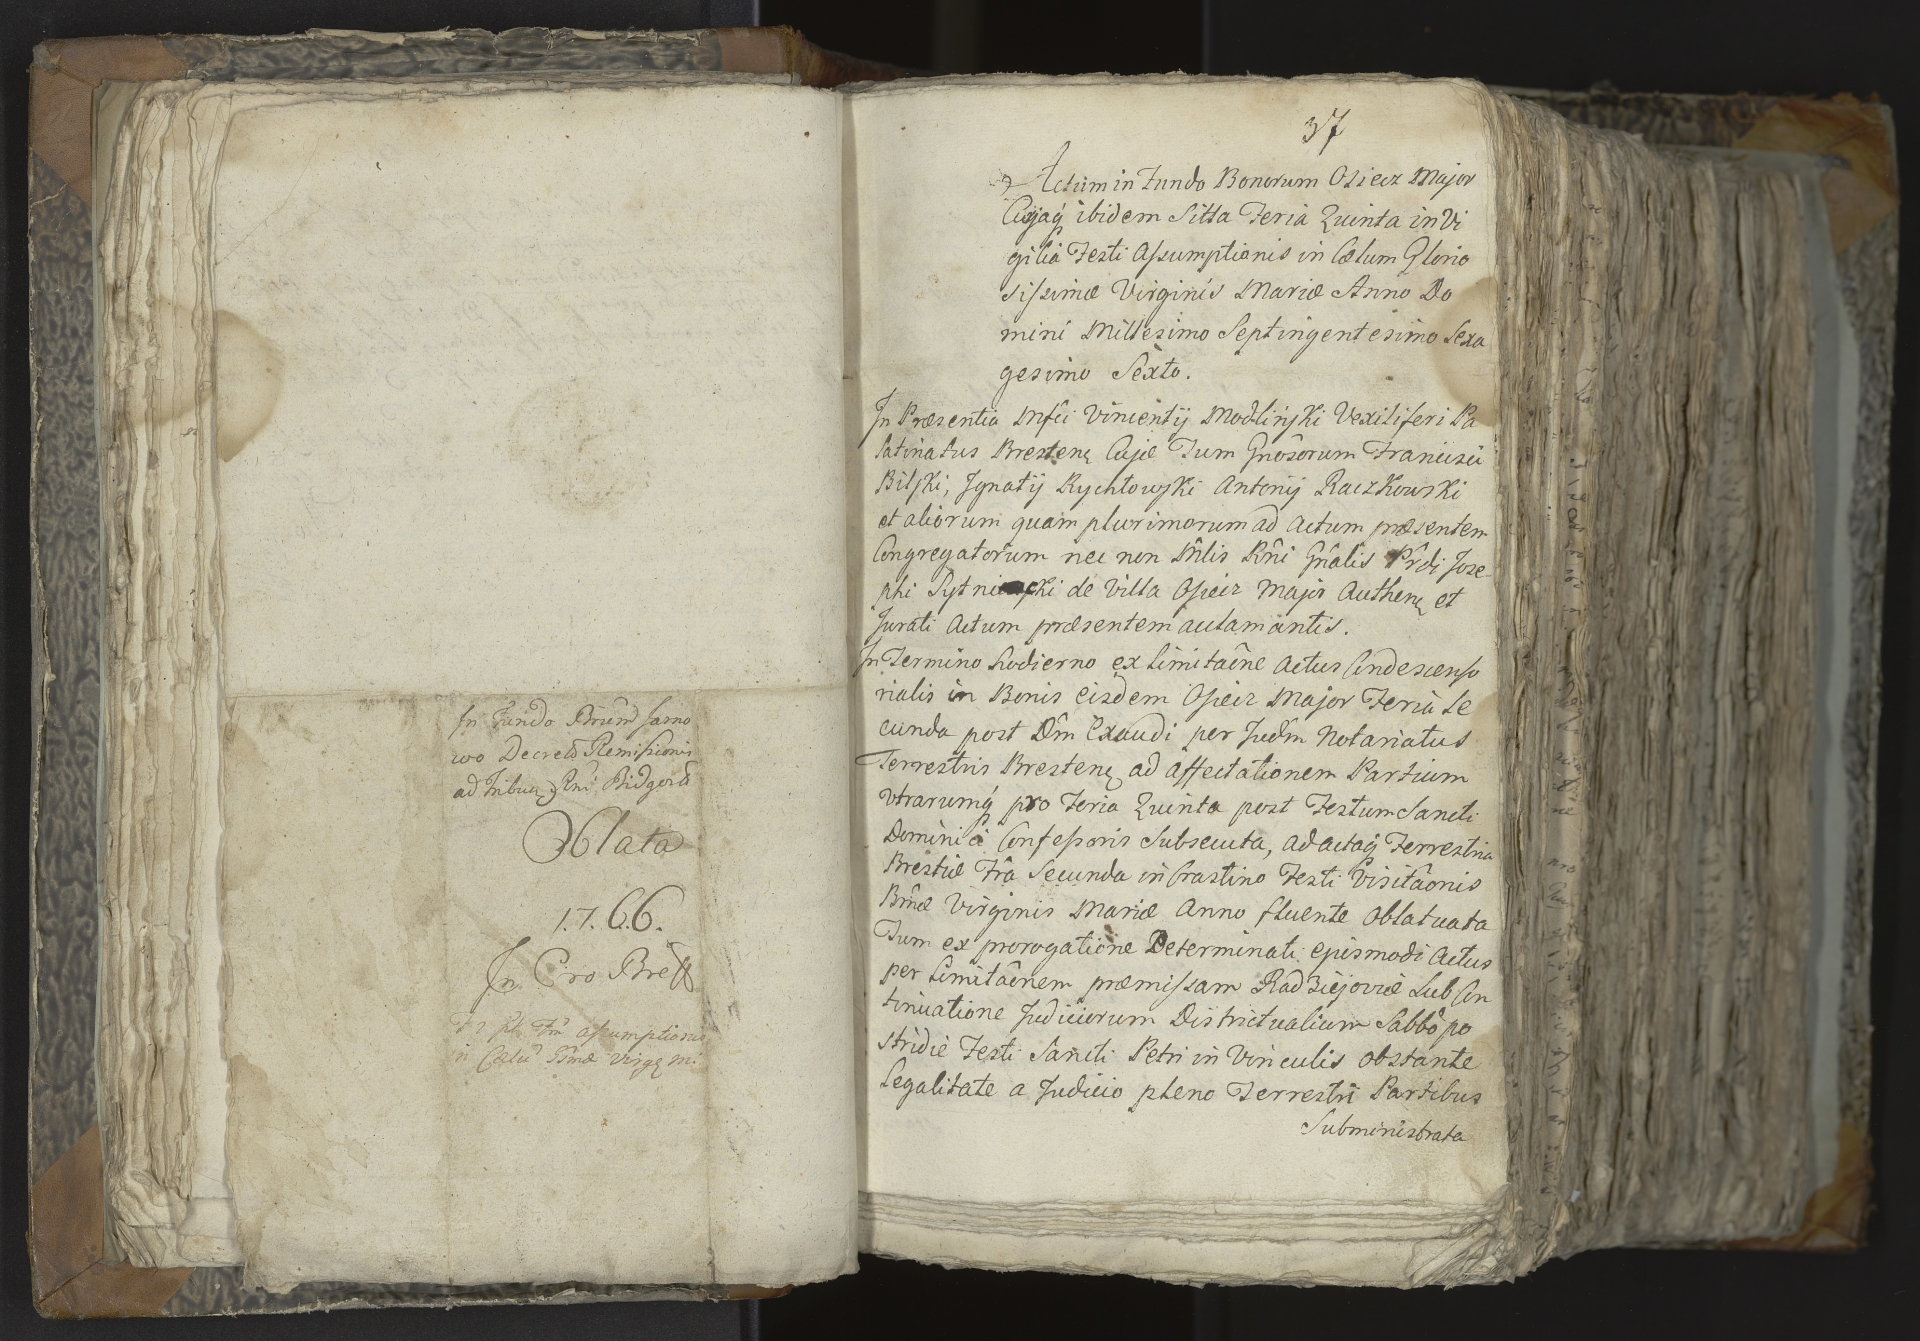 In Fundo Bnrum Sarno
wo Decretū Remissionis
ad Tribun Rni Bidgosti
Oblata
1.7.6.6.
In Cro Brest
in Cælū Bmæ Virg M.
37
Actum in Fundo Bonorum Osiecz Major
Cujaq ibidem Sitta Feria Quinta in Vi
gilia Festi Assumptionis in Cœlum Glorio
sissimæ Virginis Mariæ Anno Do
mini Millesimo Septingentesimo Sexa
gesimo Sexto.
In Præsentia Mfci Vincentij Modlinski Vexiliferi Pa
latinatus Bresten Cujæ Tum Gnosorum Francisci
Bilski, Ignatij Rychlowski Antonij Raczkowski
et aliorum quam plurimorum ad Actum præsentem
Congregatorum nec non Mlis Rni Gnâlis Prdi Jose
phi Sytni ski de Villa Osiecz Major Authen et
Jurati Actum præsentem aclamantis.
In Termino hodierno ex limitaône Actus Condescenso
rialis in Bonis eisdem Osiecz Major Feria Se
cunda post Dm̂ Exaudi per Judm̂ Notariatus
Terrestris Bresten ad affectationem Partium
Utrarumq pro Feria Quinta post Festum Sancti
Dominici Confessoris Subsecuta, ad actaq Terrestria
Brestiæ Fra Secunda in Crastino Festi Visitaônis
Bmæ Virginis Mariæ Anno fluente Oblatuata
Tum ex prorogatione Determinati ejusmodi Actus
per Limitaônem præmissam Radziejoviæ Sub Con
tinuatione Judiciorum Districtualium Sabbo po
stridie Festi Sancti Petri in Vinculis obstante
Legalitate a Judicio pleno Terrestri Partibus
Subministrata